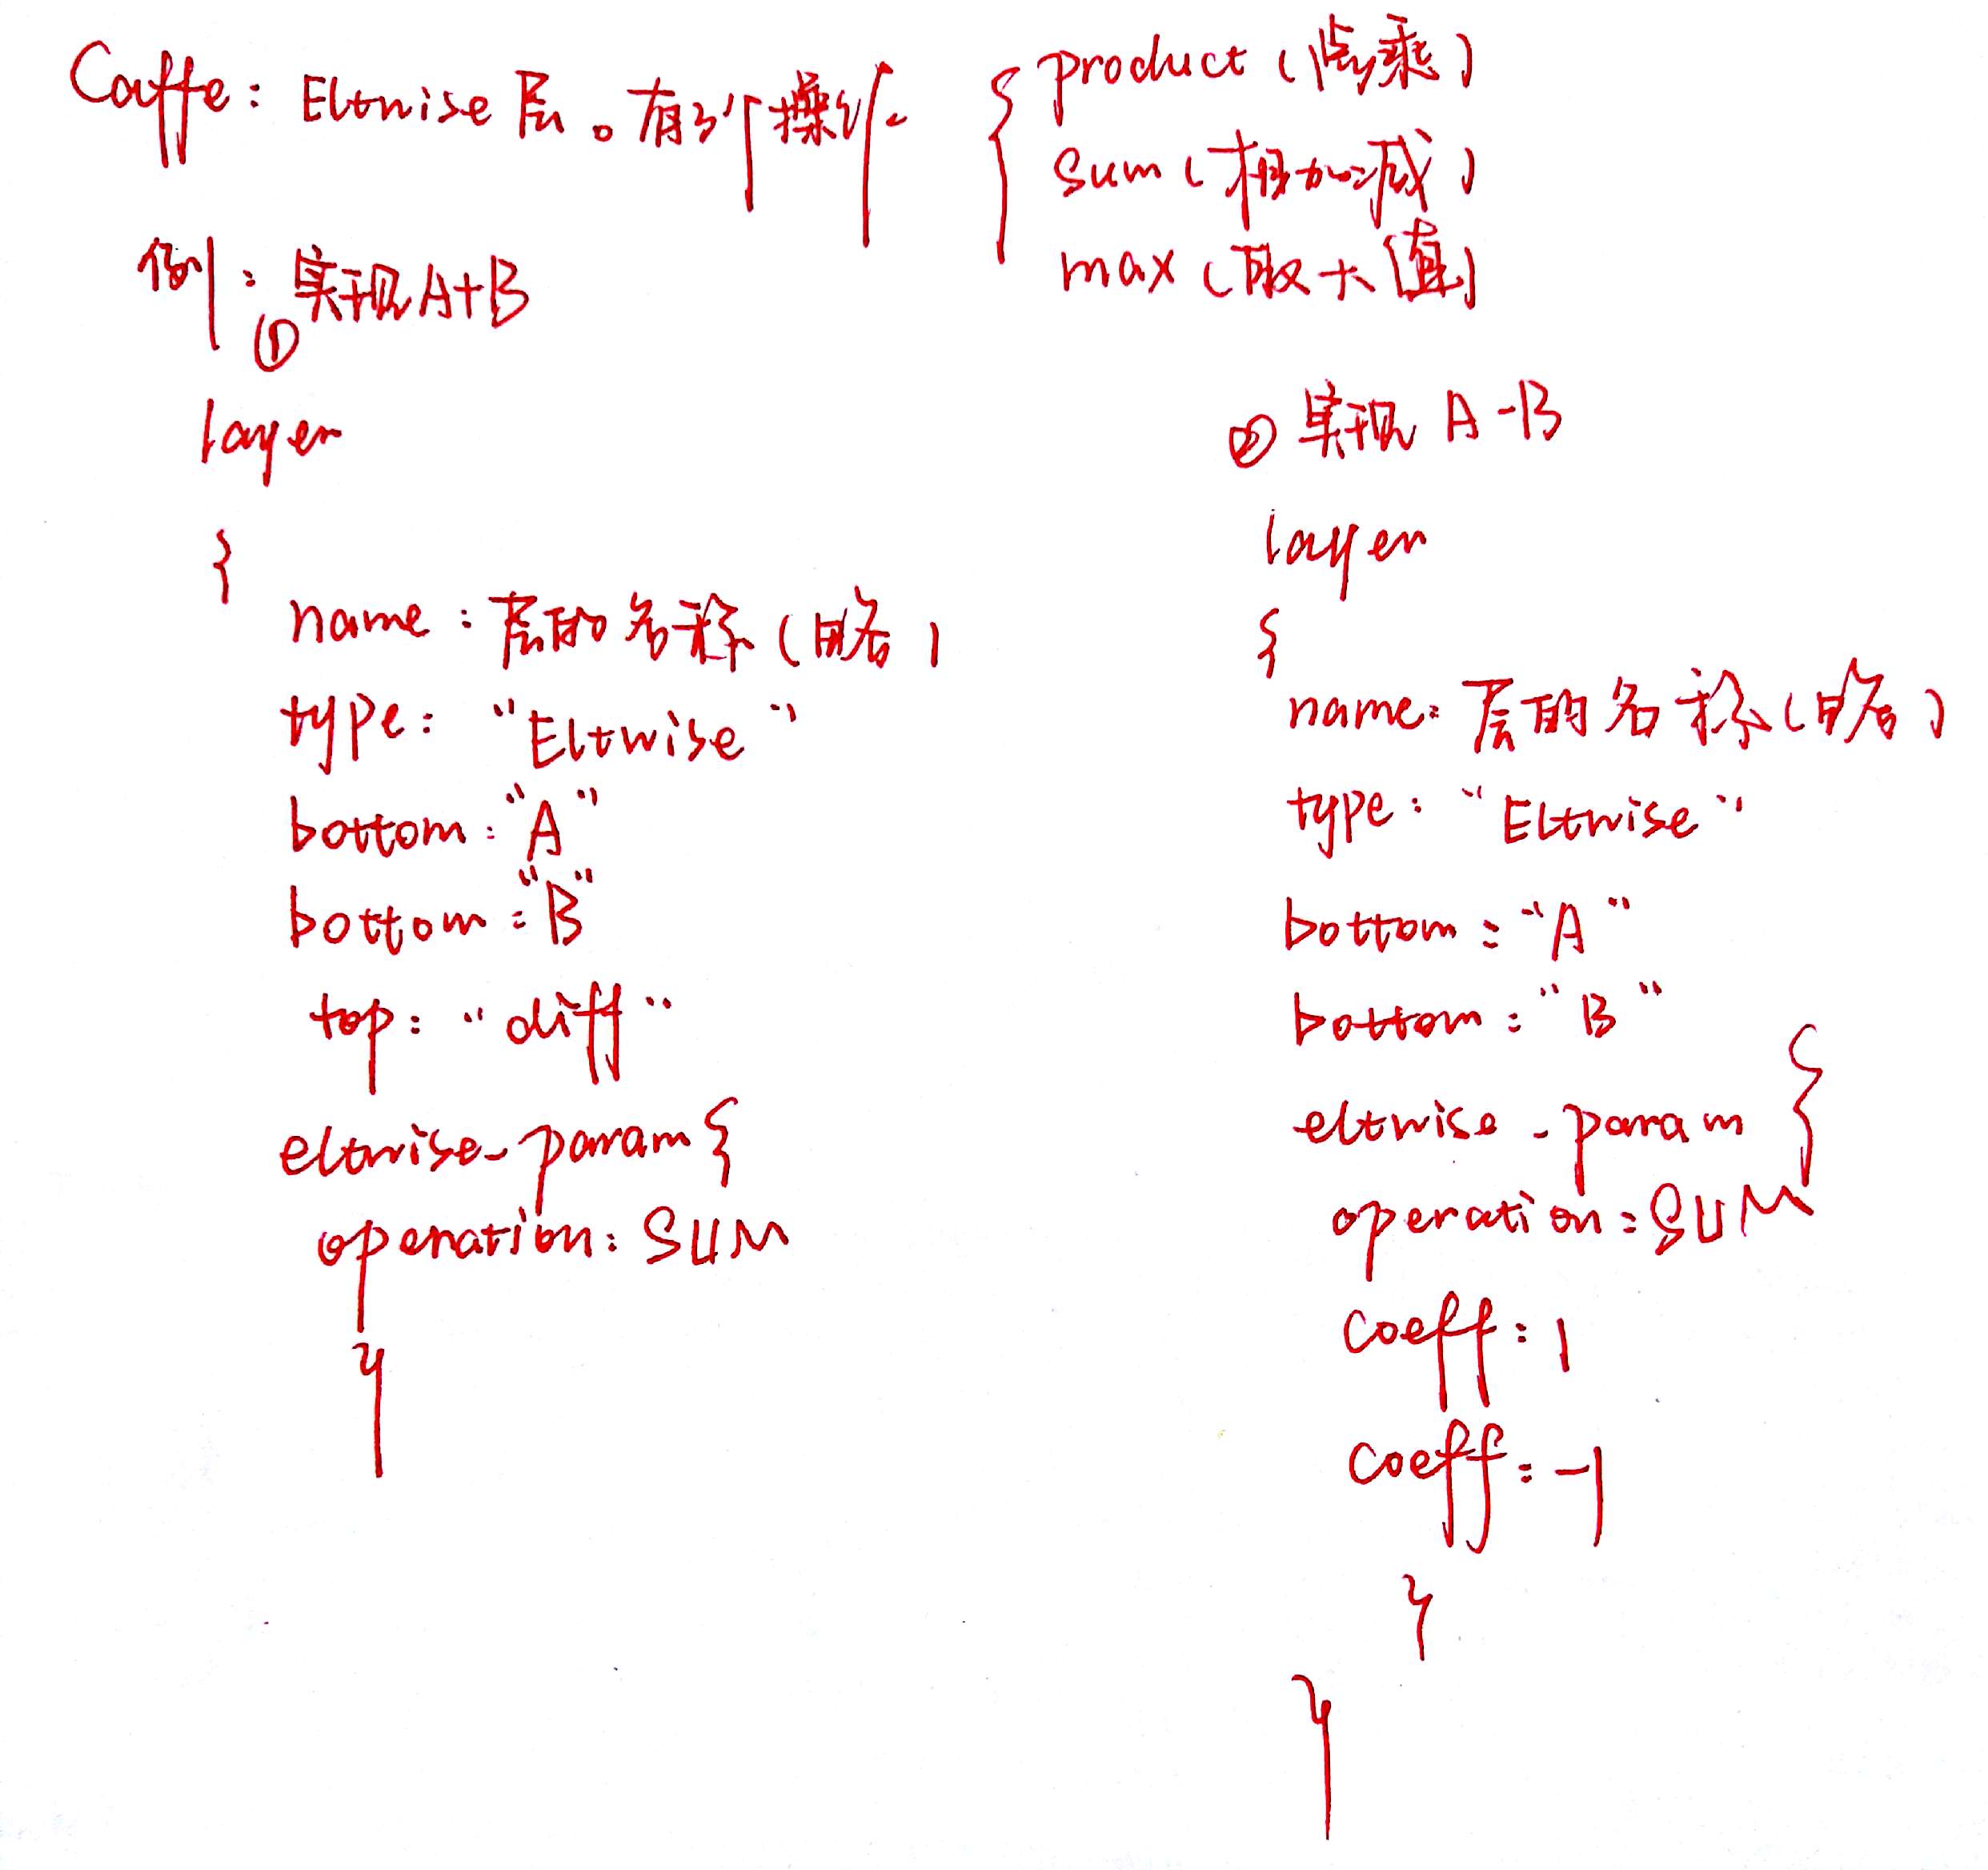 Caffe: Eltwise 层。有3个操作
{ product (点乘)
sum (相加减)
max (取大值)
例: ①实现A+B
layer
{
name: 层的名称 (略)
type: "Eltwise"
bottom: "A"
bottom: "B"
top: "diff"
eltwise_param {
operation: SUM
}
② 实现 A-B
layer
{
name: 层的名称 (略)
type: "Eltwise"
bottom: "A"
bottom: "B"
eltwise_param {
operation: SUM
coeff: 1
coeff: -1
}
}